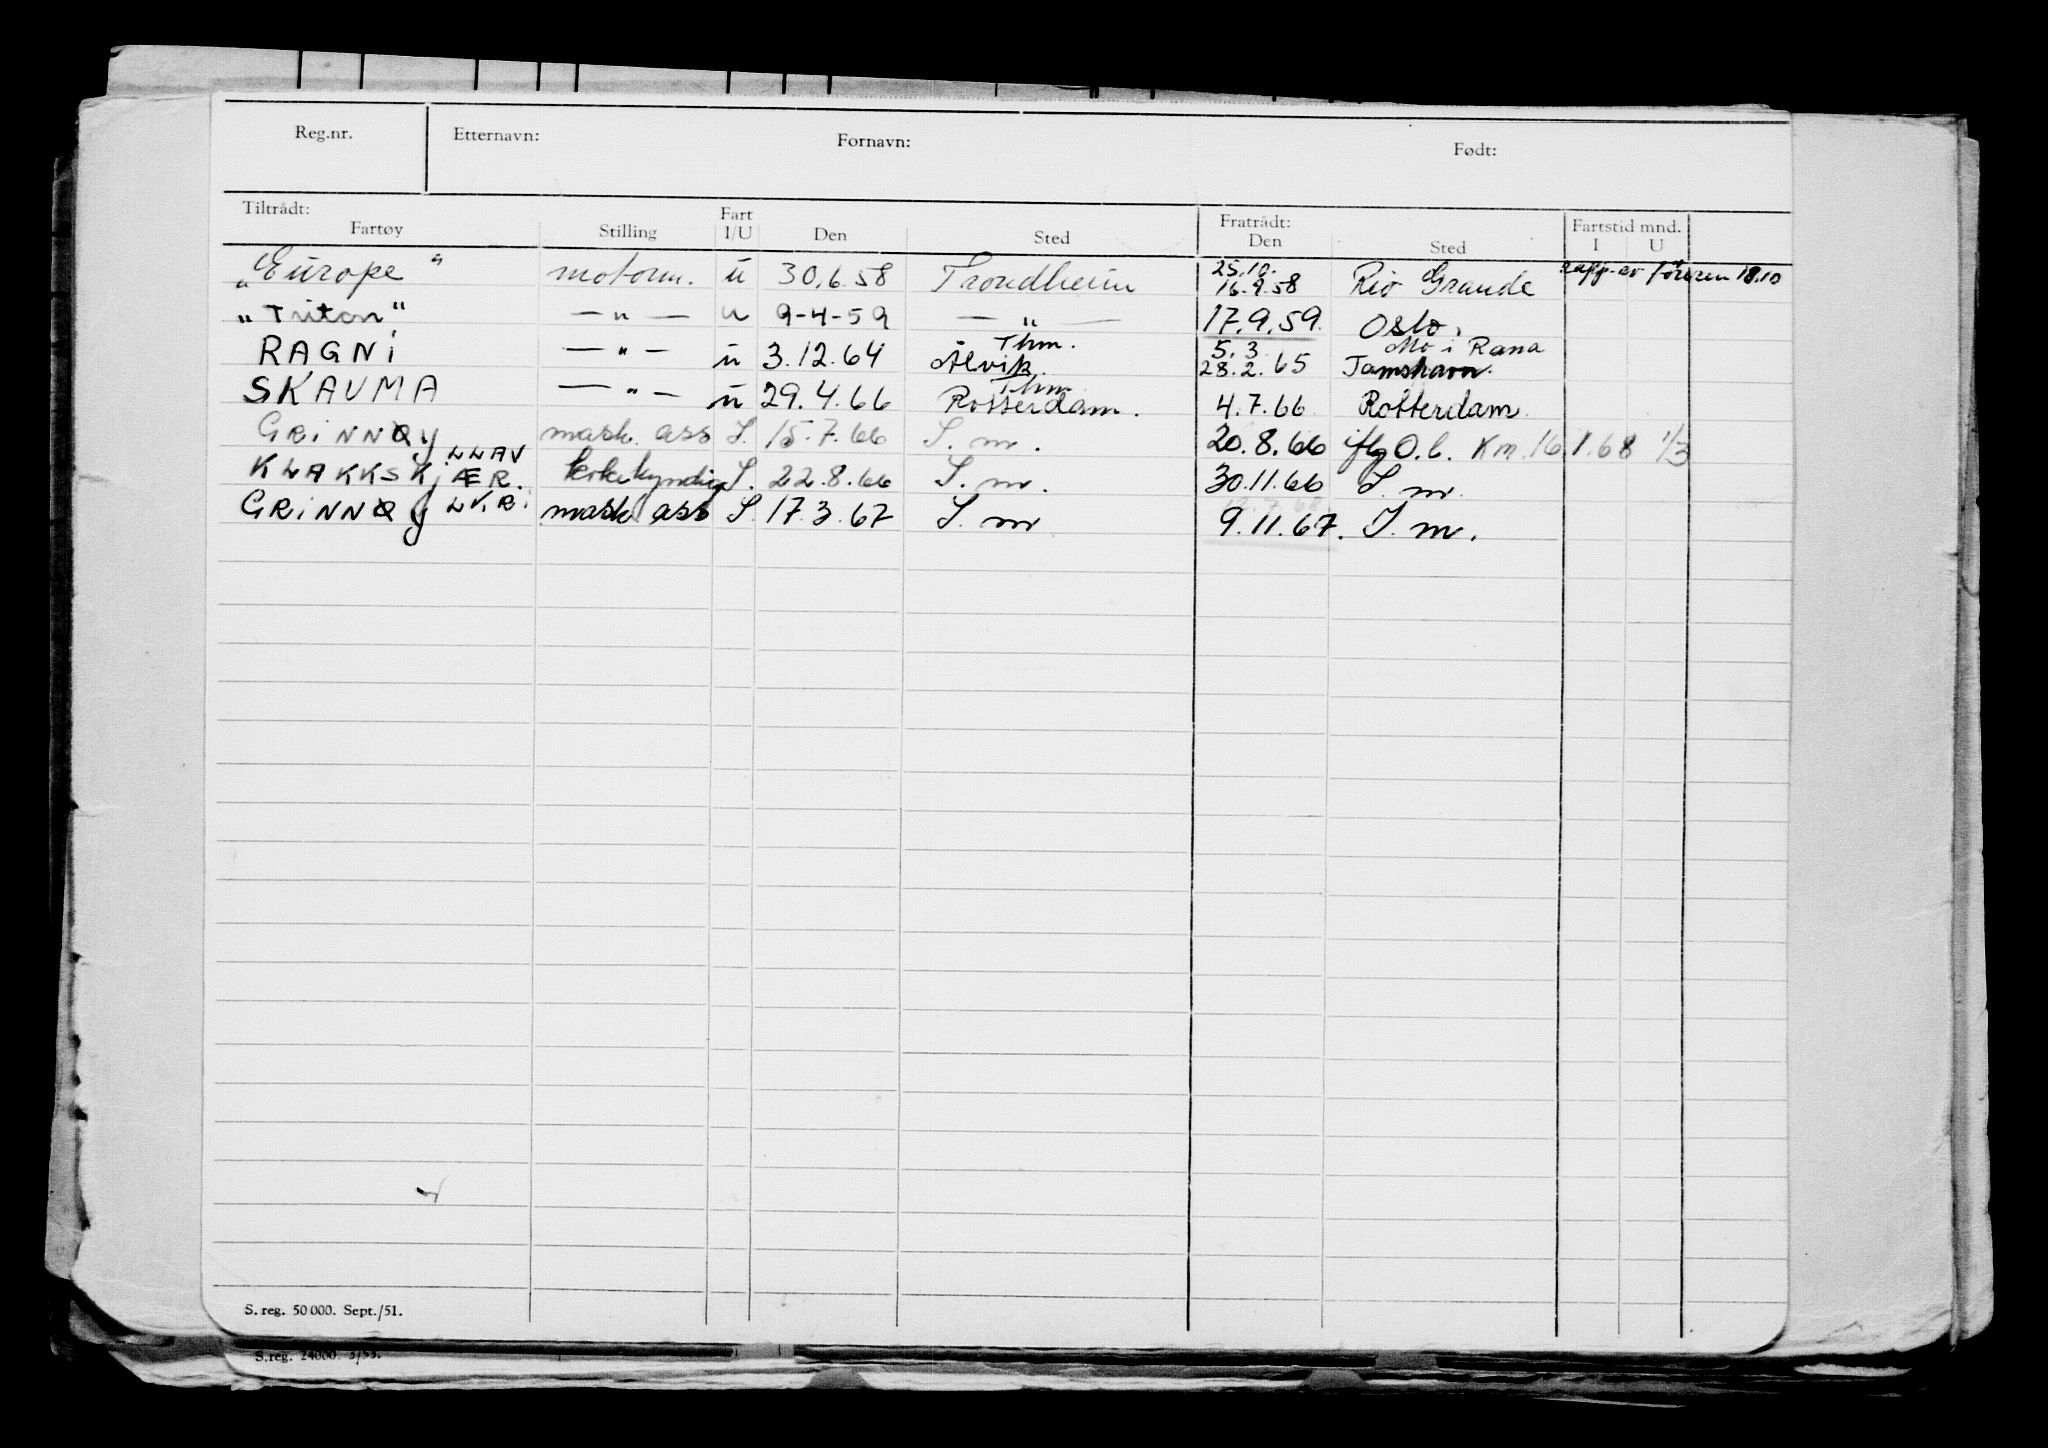 Reg.nr. Etternavn: Fornavn: Født:
Tiltrådt: Fartøy Stilling Fart I/U Den Sted Fratrådt: Den Sted Fartstid mnd. I U
"Europe" motorm. u 30.6.58 Trondheim 25.10. 16.9.58 Rio Grande rapp. av føreren 18.10
"Triton" — " — u 9-4-59 — " — 17.9.59. Oslo.
RAGNi — " — u 3.12.64 Thm. Ålvik. 5.3 28.2.65 Mo i Rana
SKAUMA — " — u 29.4.66 Thm Rotterdam. 4.7.66 Rotterdam
GRiNNØy mask. ass S. 15.7.66 S. m. 20.8.66 iflg O.b. Km. 16 1.68 1/3
KLAKKSKjÆR. LLAV S. 22.8.66 S. m. 30.11.66 S. m.
GRiNNØy LKRi mask ass S. 17.3.67 S. m 9.11.67. S. m.
S. reg. 50 000. Sept./51.
S.reg. 24000. 3/53.